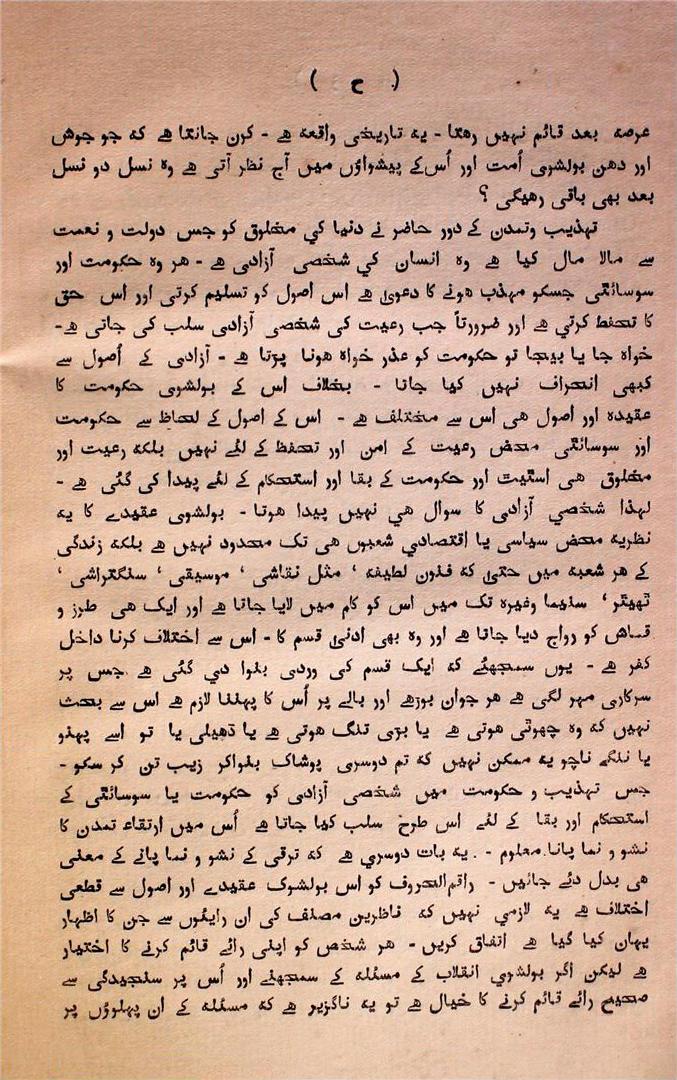 ( ح )
عرصہ بعد قائم نہیں رھتا - یہ تاریخی واقعہ ھے - کون جانتا ھے کہ جو جوش
اور دھن بولشوی اُمت اور اُس کے پیشواؤں میں آج نظر آتی ھے وہ نسل دو نسل
بعد بھی باقی رھیگی ؟
تہذیب وتمدن کے دور حاضر نے دنیا کي مخلوق کو جس دولت و نعمت
سے مالا مال کیا ھے وہ انسان کي شخصی آزادی ھے - ھر وہ حکومت اور
سوسائٹی جسکو مہذب ھونے کا دعویٰ ھے اس اصول کو تسلیم کرتی اور اس حق
کا تحفظ کرتي ھے اور ضرورتاً جب رعیت کی شخصی آزادی سلب کی جاتی ھے-
خواہ جا یا بیجا تو حکومت کو عذر خواہ ھونا پڑتا ھے - آزادی کے اُصول سے
کبھی انحراف نہیں کیا جاتا - بخلاف اس کے بولشوی حکومت کا
عقیدہ اور اصول ھی اس سے مختلف ھے - اس کے اصول کے لحاظ سے حکومت
اور سوسائٹی محض رعیت کے امن اور تحفظ کے لئے نہیں بلکہ رعیت اور
مخلوق ھی اسٹیٹ اور حکومت کے بقا اور استحکام کے لئے پیدا کی گئی ھے -
لہذا شخصی آزادی کا سوال ھي نہیں پیدا ھوتا - بولشوی عقیدے کا یہ
نظریہ محض سیاسی یا اقتصادي شعبوں ھی تک محدود نہیں ھے بلکہ زندگی
کے ھر شعبہ میں حتیٰ کہ فنون لطیفہ ، مثل نقاشی ، موسیقی ، سنگتراشی ،
تھیٹر ، سنیما وغیرہ تک میں اس کو کام میں لایا جاتا ھے اور ایک ھی طرز و
قماش کو رواج دیا جاتا ھے اور وہ بھی ادنیٰ قسم کا - اس سے اختلاف کرنا داخل
کفر ھے - یوں سمجھئے کہ ایک قسم کی وردی بنوا دی گئی ھے جس پر
سرکاری مہر لگی ھے ھر جوان بوڑھے اور بالے پر اُس کا پہننا لازم ھے اس سے بحث
نہیں کہ وہ چھوٹی ھوتی ھے یا بڑی تنگ ھوتی ھے یا ڈھیلی یا تو اسے پہنو
یا ننگے ناچو یہ ممکن نہیں کہ تم دوسری پوشاک بنواکر زیب تن کر سکو -
جس تہذیب و حکومت میں شخصی آزادی کو حکومت یا سوسائٹی کے
استحکام اور بقا کے لئے اس طرح سلب کیا جاتا ھے اُس میں ارتقاء تمدن کا
نشو و نما پانا معلوم - یہ بات دوسري ھے کہ ترقی کے نشو و نما پانے کے معنی
ھی بدل دئے جائیں - راقم‌الحروف کو اس بولشوک عقیدے اور اصول سے قطعی
اختلاف ھے یہ لازمي نہیں کہ ناظرین مصنف کی ان رایئوں سے جن کا اظہار
یہاں کیا گیا ھے اتفاق کریں - ھر شخص کو اپنی رائے قائم کرنے کا اختیار
ھے لیکن اگر بولشوي انقلاب کے مسئلہ کے سمجھنے اور اُس پر سنجیدگی سے
صحیح رائے قائم کرنے کا خیال ھے تو یہ ناگزیر ھے کہ مسئلہ کے ان پہلوؤں پر